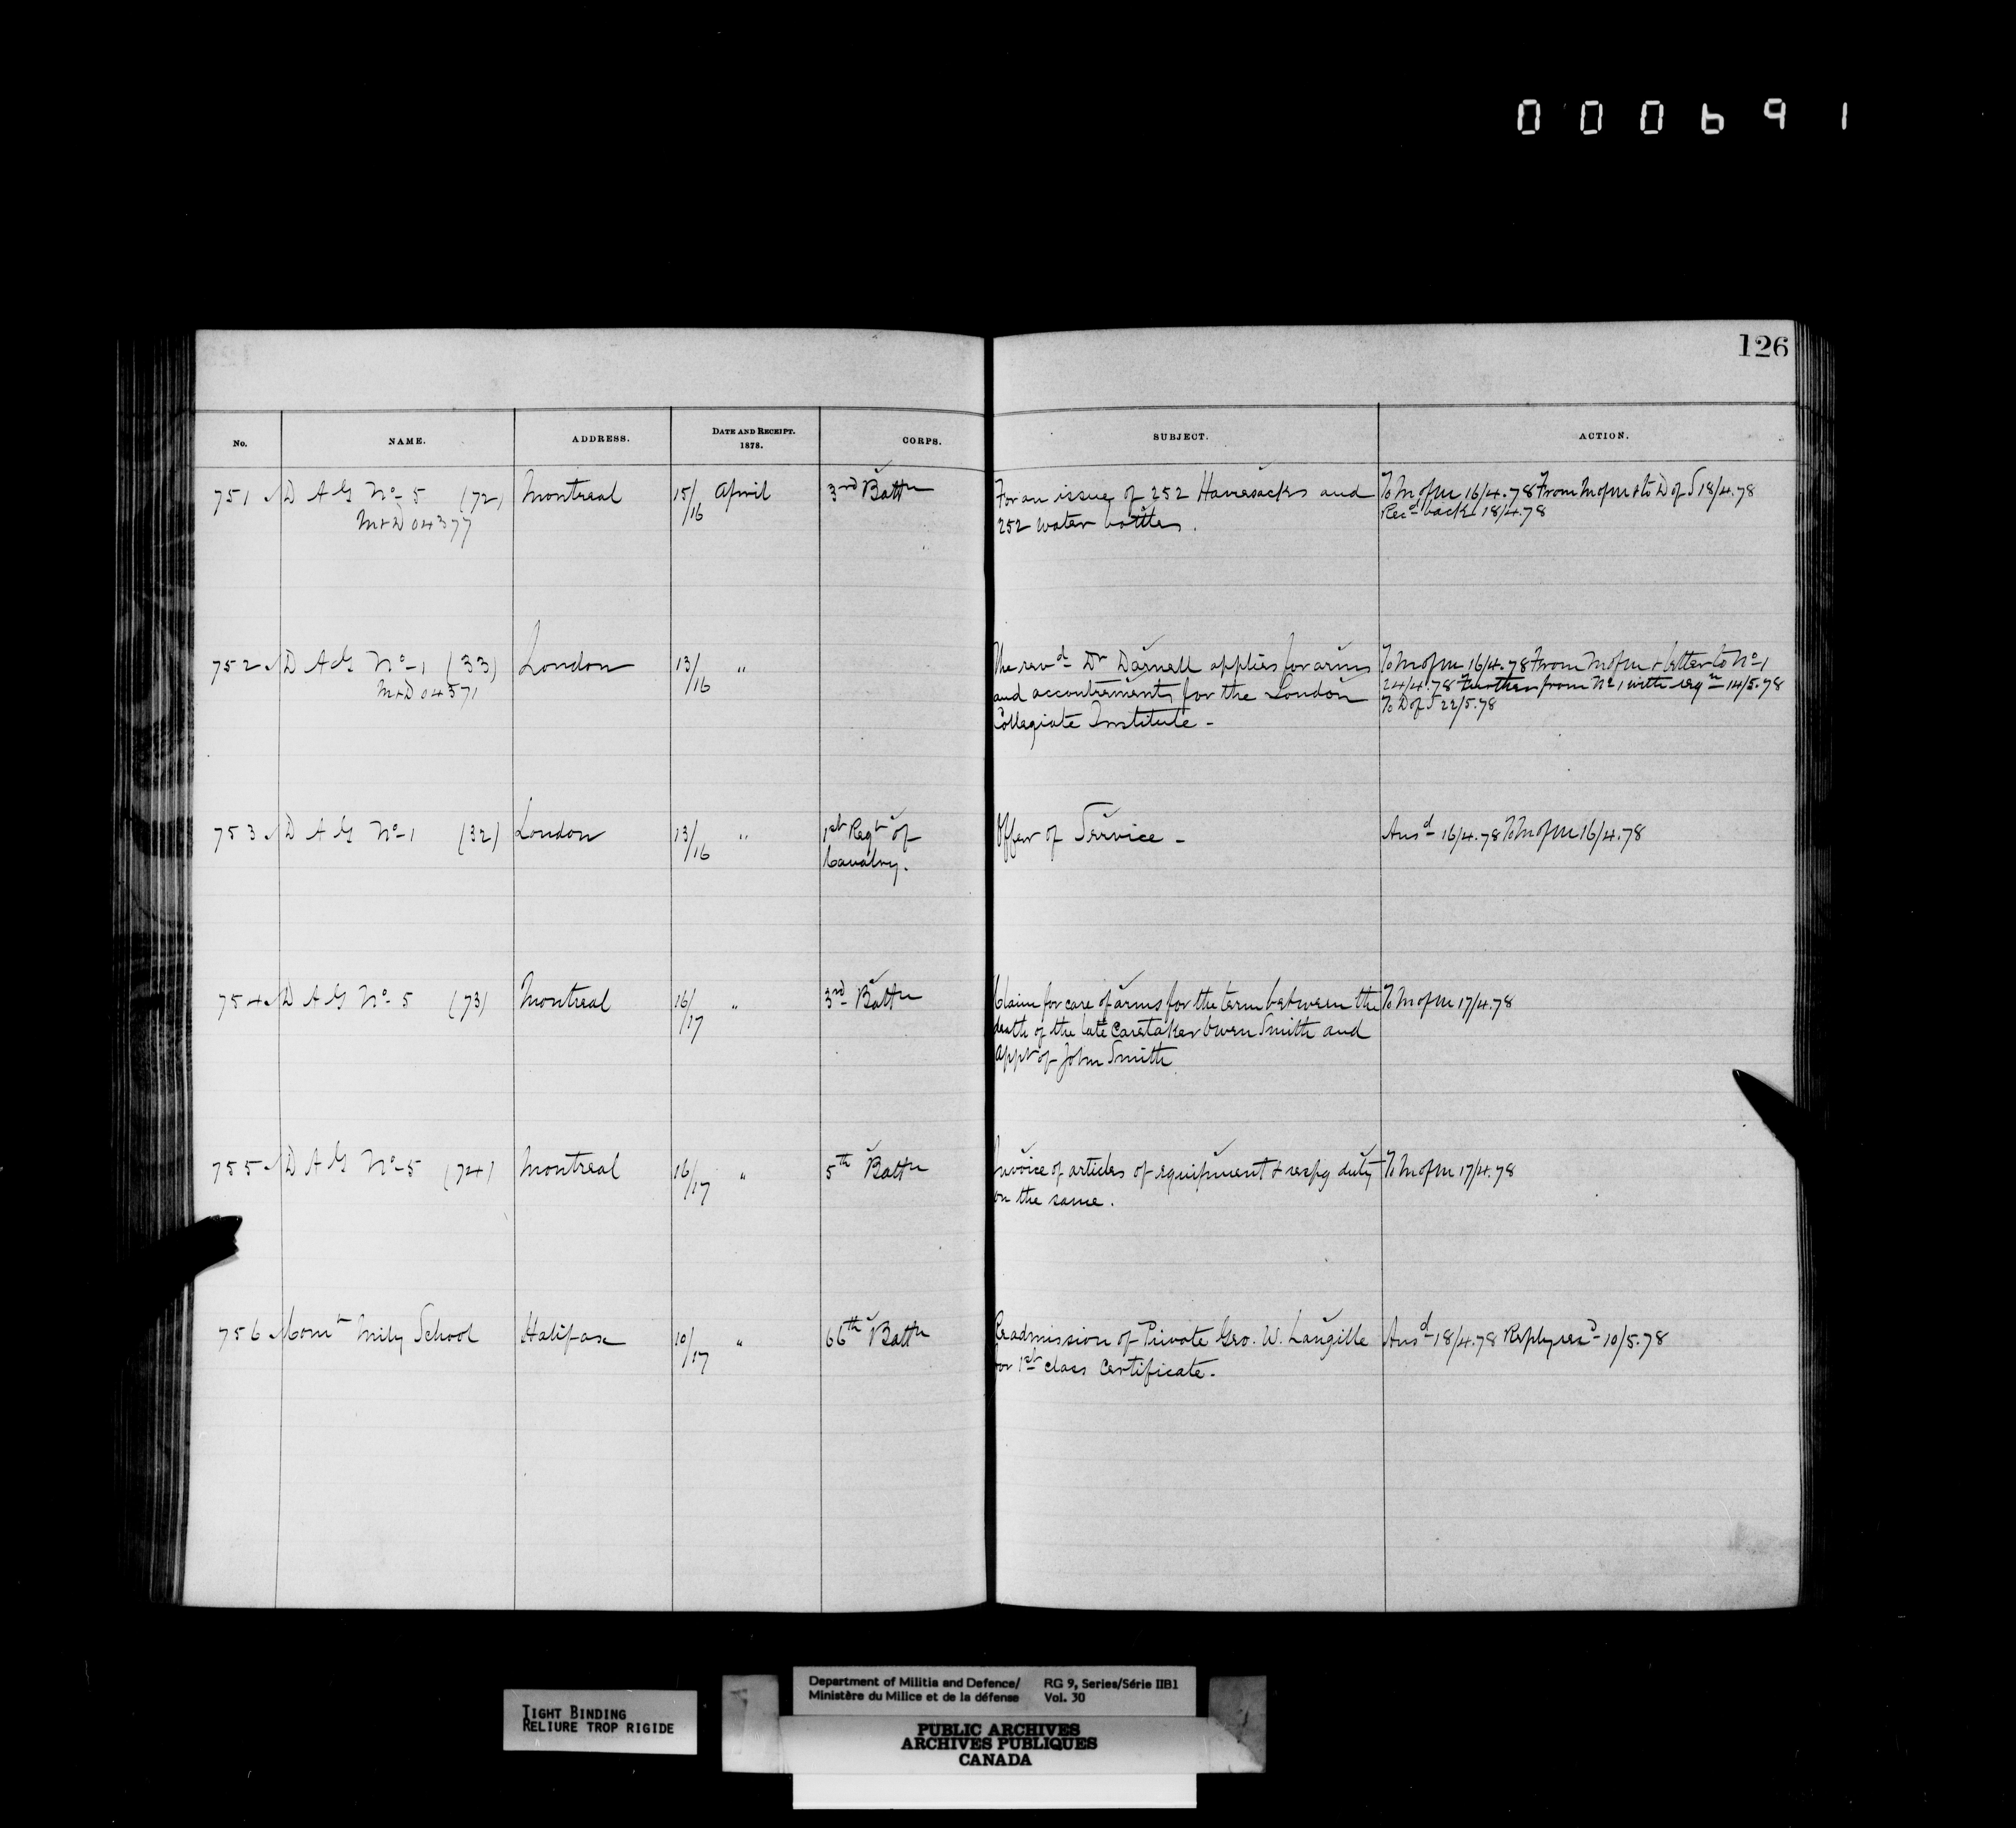 000691
126
No. NAME. ADDRESS. DATE AND RECEIPT. 1878. CORPS. SUBJECT. ACTION.
751 D A G No 5 (72) Montreal 15/16 April 3rd Battn For an issue of 252 Haversacks and To M of M 16/4.78 From M of M & to D of S 18/4.78
M&D 04377 252 water bottles. Recd back 18/4.78
752 D A G No 1 (33) London 13/16 " The revd Dr Darnell applies for arms To M of M 16/4.78 From M of M & letter to No 1
M&D 04371 and accoutrements for the London 24/4.78 Further from No 1 with reqn 14/5.78
Collegiate Institute - To D of S 22/5.78
753 D A G No 1 (32) London 13/16 " 1st Regt of Offer of Service - Ansd 16/4.78 To M of M 16/4.78
Cavalry.
754 D A G No 5 (73) Montreal 16/17 " 3rd Battn Claim for care of arms for the term between the To M of M 17/4.78
death of the late Caretaker Owen Smith and
appt of John Smith
755 D A G No 5 (74) Montreal 16/17 " 5th Battn Invoice of articles of equipment & respg duty To M of M 17/4.78
on the same.
756 Comt Mily School Halifax 10/17 " 66th Battn Readmission of Private Geo. W. Langille Ansd 18/4.78 Reply recd 10/5.78
for 1st class Certificate.
TIGHT BINDING
RELIURE TROP RIGIDE
Department of Militia and Defence/ RG 9, Series/Série IIB1
Ministère du Milice et de la défense Vol. 30
PUBLIC ARCHIVES
ARCHIVES PUBLIQUES
CANADA